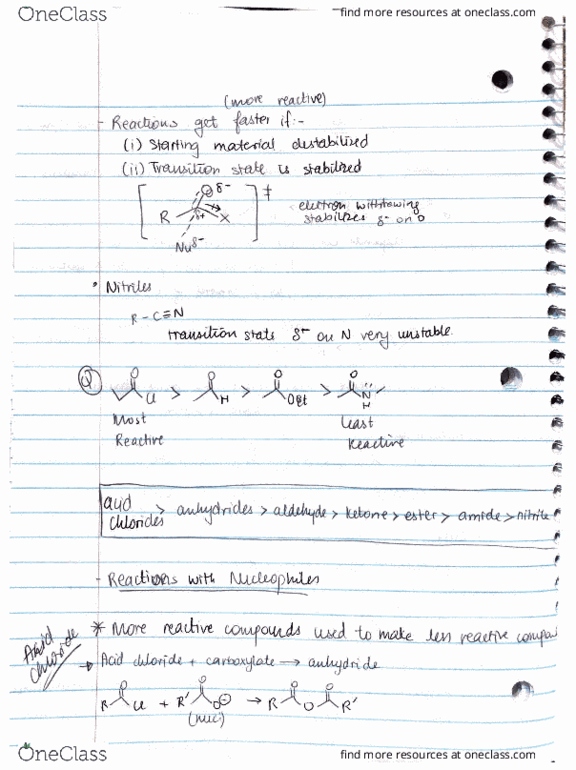 OneClass
find more resources at oneclass.com
(more reactive)
- Reactions get faster if:-
(i) Starting material destabilized
(ii) Transition state is stabilized
O δ-
‡
R δ+ X
Nu δ-
electron withdrawing
stabilizes δ- on O
• Nitriles
R-C≡N
transition state δ- on N very unstable.
Q
O O O O
Cl > H > OEt > N
H
Most
Reactive
Least
Reactive
acid
chlorides > anhydrides > aldehyde > ketone > ester > amide > nitrile
- Reactions with Nucleophiles
Acid
chloride
* More reactive compounds used to make less reactive compou
→ Acid chloride + carboxylate → anhydride
O O O O
R Cl + R' O⊖ → R O R'
(nuc)
OneClass
find more resources at oneclass.com